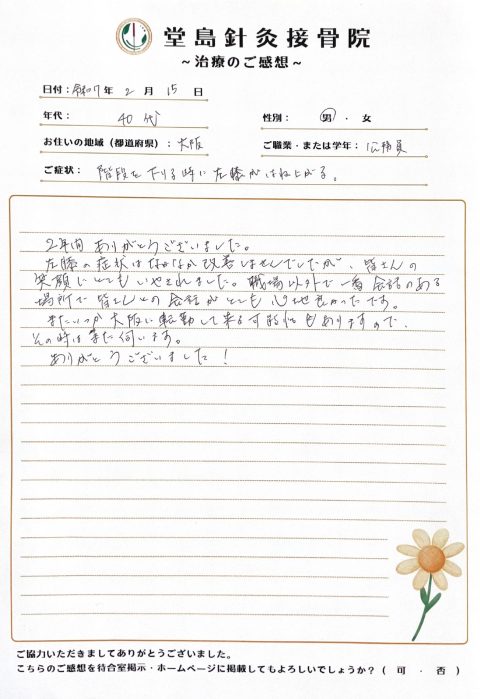 堂島針灸接骨院
～治療のご感想～
日付：令和7年 2月 15日
年代： 40代
性別： 男 ・ 女
お住いの地域（都道府県）： 大阪
ご職業・または学年： 公務員
ご症状： 階段を下りる時に左膝がはね上がる。
2年間 ありがとうございました。
左膝の症状はなかなか改善しませんでしたが、皆さんの
笑顔にとてもいやされました。職場以外で一番会話のある
場所で 皆さんとの会話がとても心地良かったです。
またいつか大阪に転勤して来る可能性もありますので、
その時はまた伺います。
ありがとうございました！
ご協力いただきましてありがとうございました。
こちらのご感想を待合室掲示・ホームページに掲載してもよろしいでしょうか？（ 可 ・ 否 ）